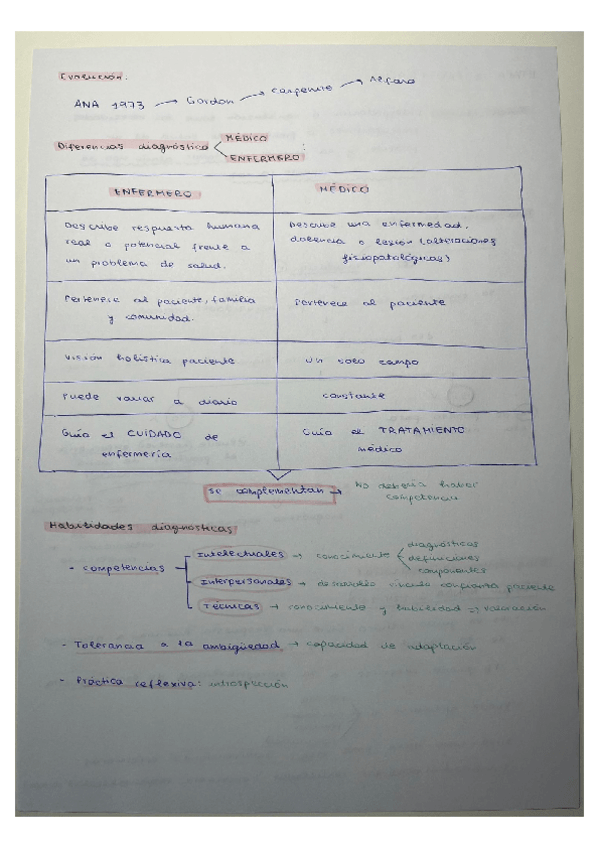 Evolución.
ANA 1973 → Gordon → Carpenito → Alfaro
Diferencias diagnóstico
MÉDICO
ENFERMERO
ENFERMERO
MÉDICO
Describe respuesta humana
real o potencial frente a
un problema de salud.
Describe una enfermedad,
dolencia o lesión (alteraciones
fisiopatológicas)
Pertenece al paciente, familia
y comunidad.
Pertenece al paciente
Visión holística paciente
Un solo campo
Puede variar a diario
constante
Guía el CUIDADO de
enfermería
Guía el TRATAMIENTO
médico
Se complementan → No debería haber
competencia
Habilidades diagnósticas
- Competencias
Intelectuales → conocimiento
diagnósticas
definiciones
componentes
Interpersonales → desarrollo vínculo confianza paciente
Técnicas → conocimiento y habilidad => valoración
- Tolerancia a la ambigüedad → capacidad de adaptación
- Práctica reflexiva: introspección